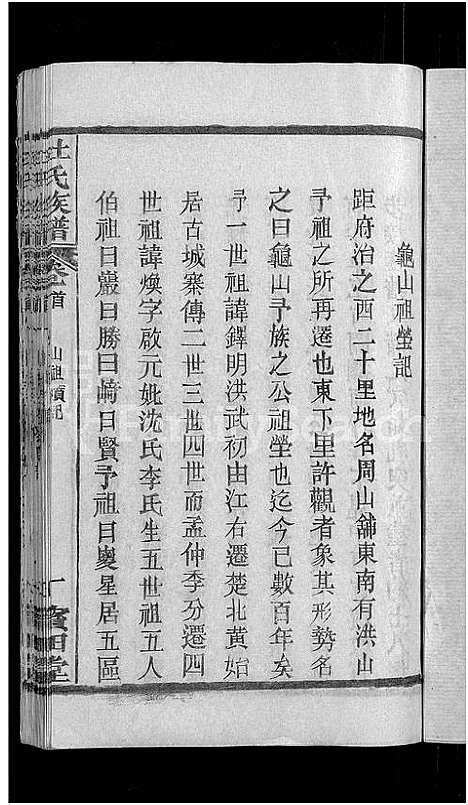 龜山祖塋記
距府治之西二十里地名周山舖東南有洪山
予祖之所再遷也東下里許觀者象其形勢名
之曰龜山予族之公祖塋也迄今已數百年矣
予一世祖諱鐸明洪武初由江右遷楚北黃始
居古城寨傳二世三世四世而孟仲季分遷四
世祖諱煥字啟元妣沈氏李氏生五世祖五人
伯祖曰叢曰勝曰崎曰賢予祖曰夔星居五區
杜氏族譜 卷首